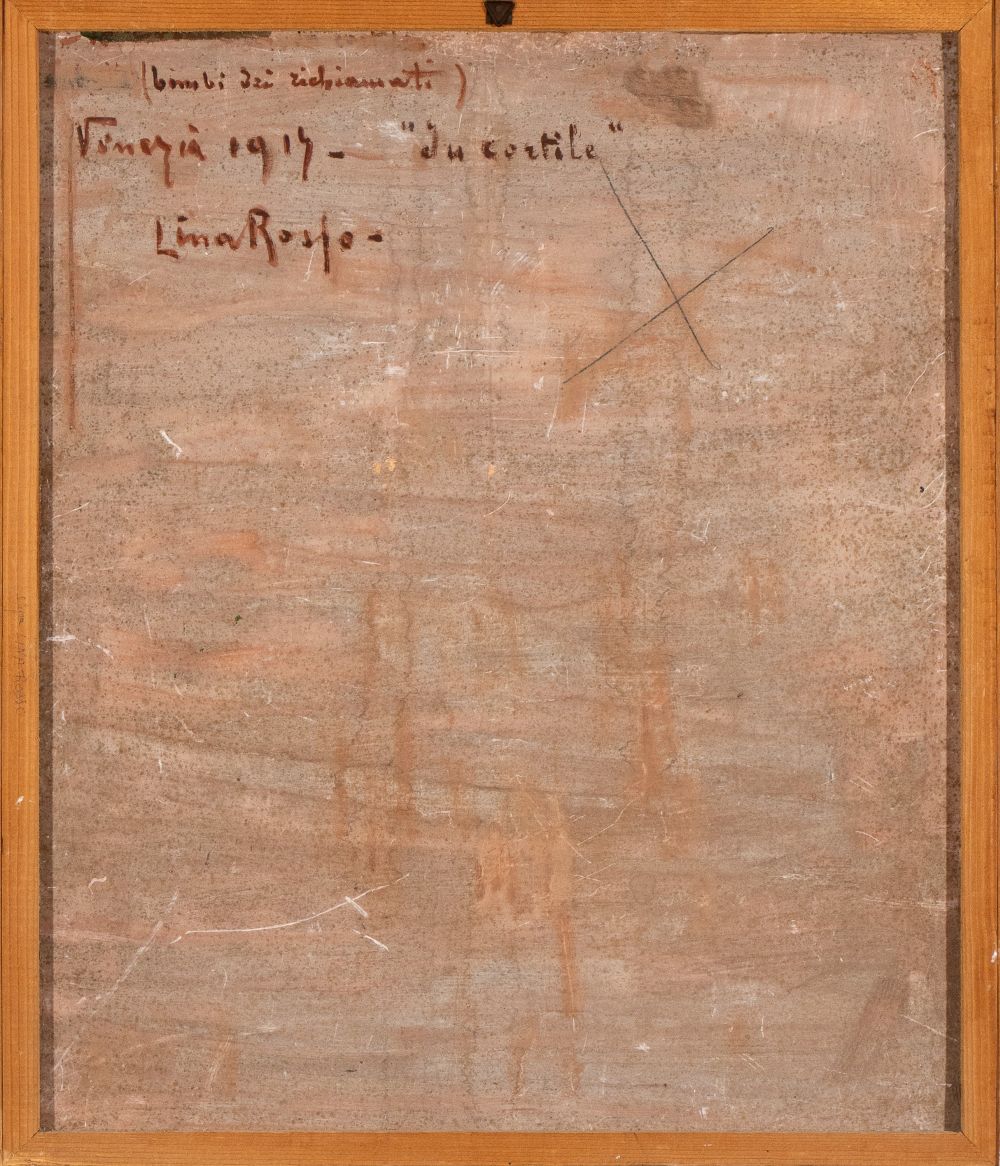 (bimbi dei richiamati)
Venezia 1917 - "In cortile"
Lina Rosso -
LINA ROSSO